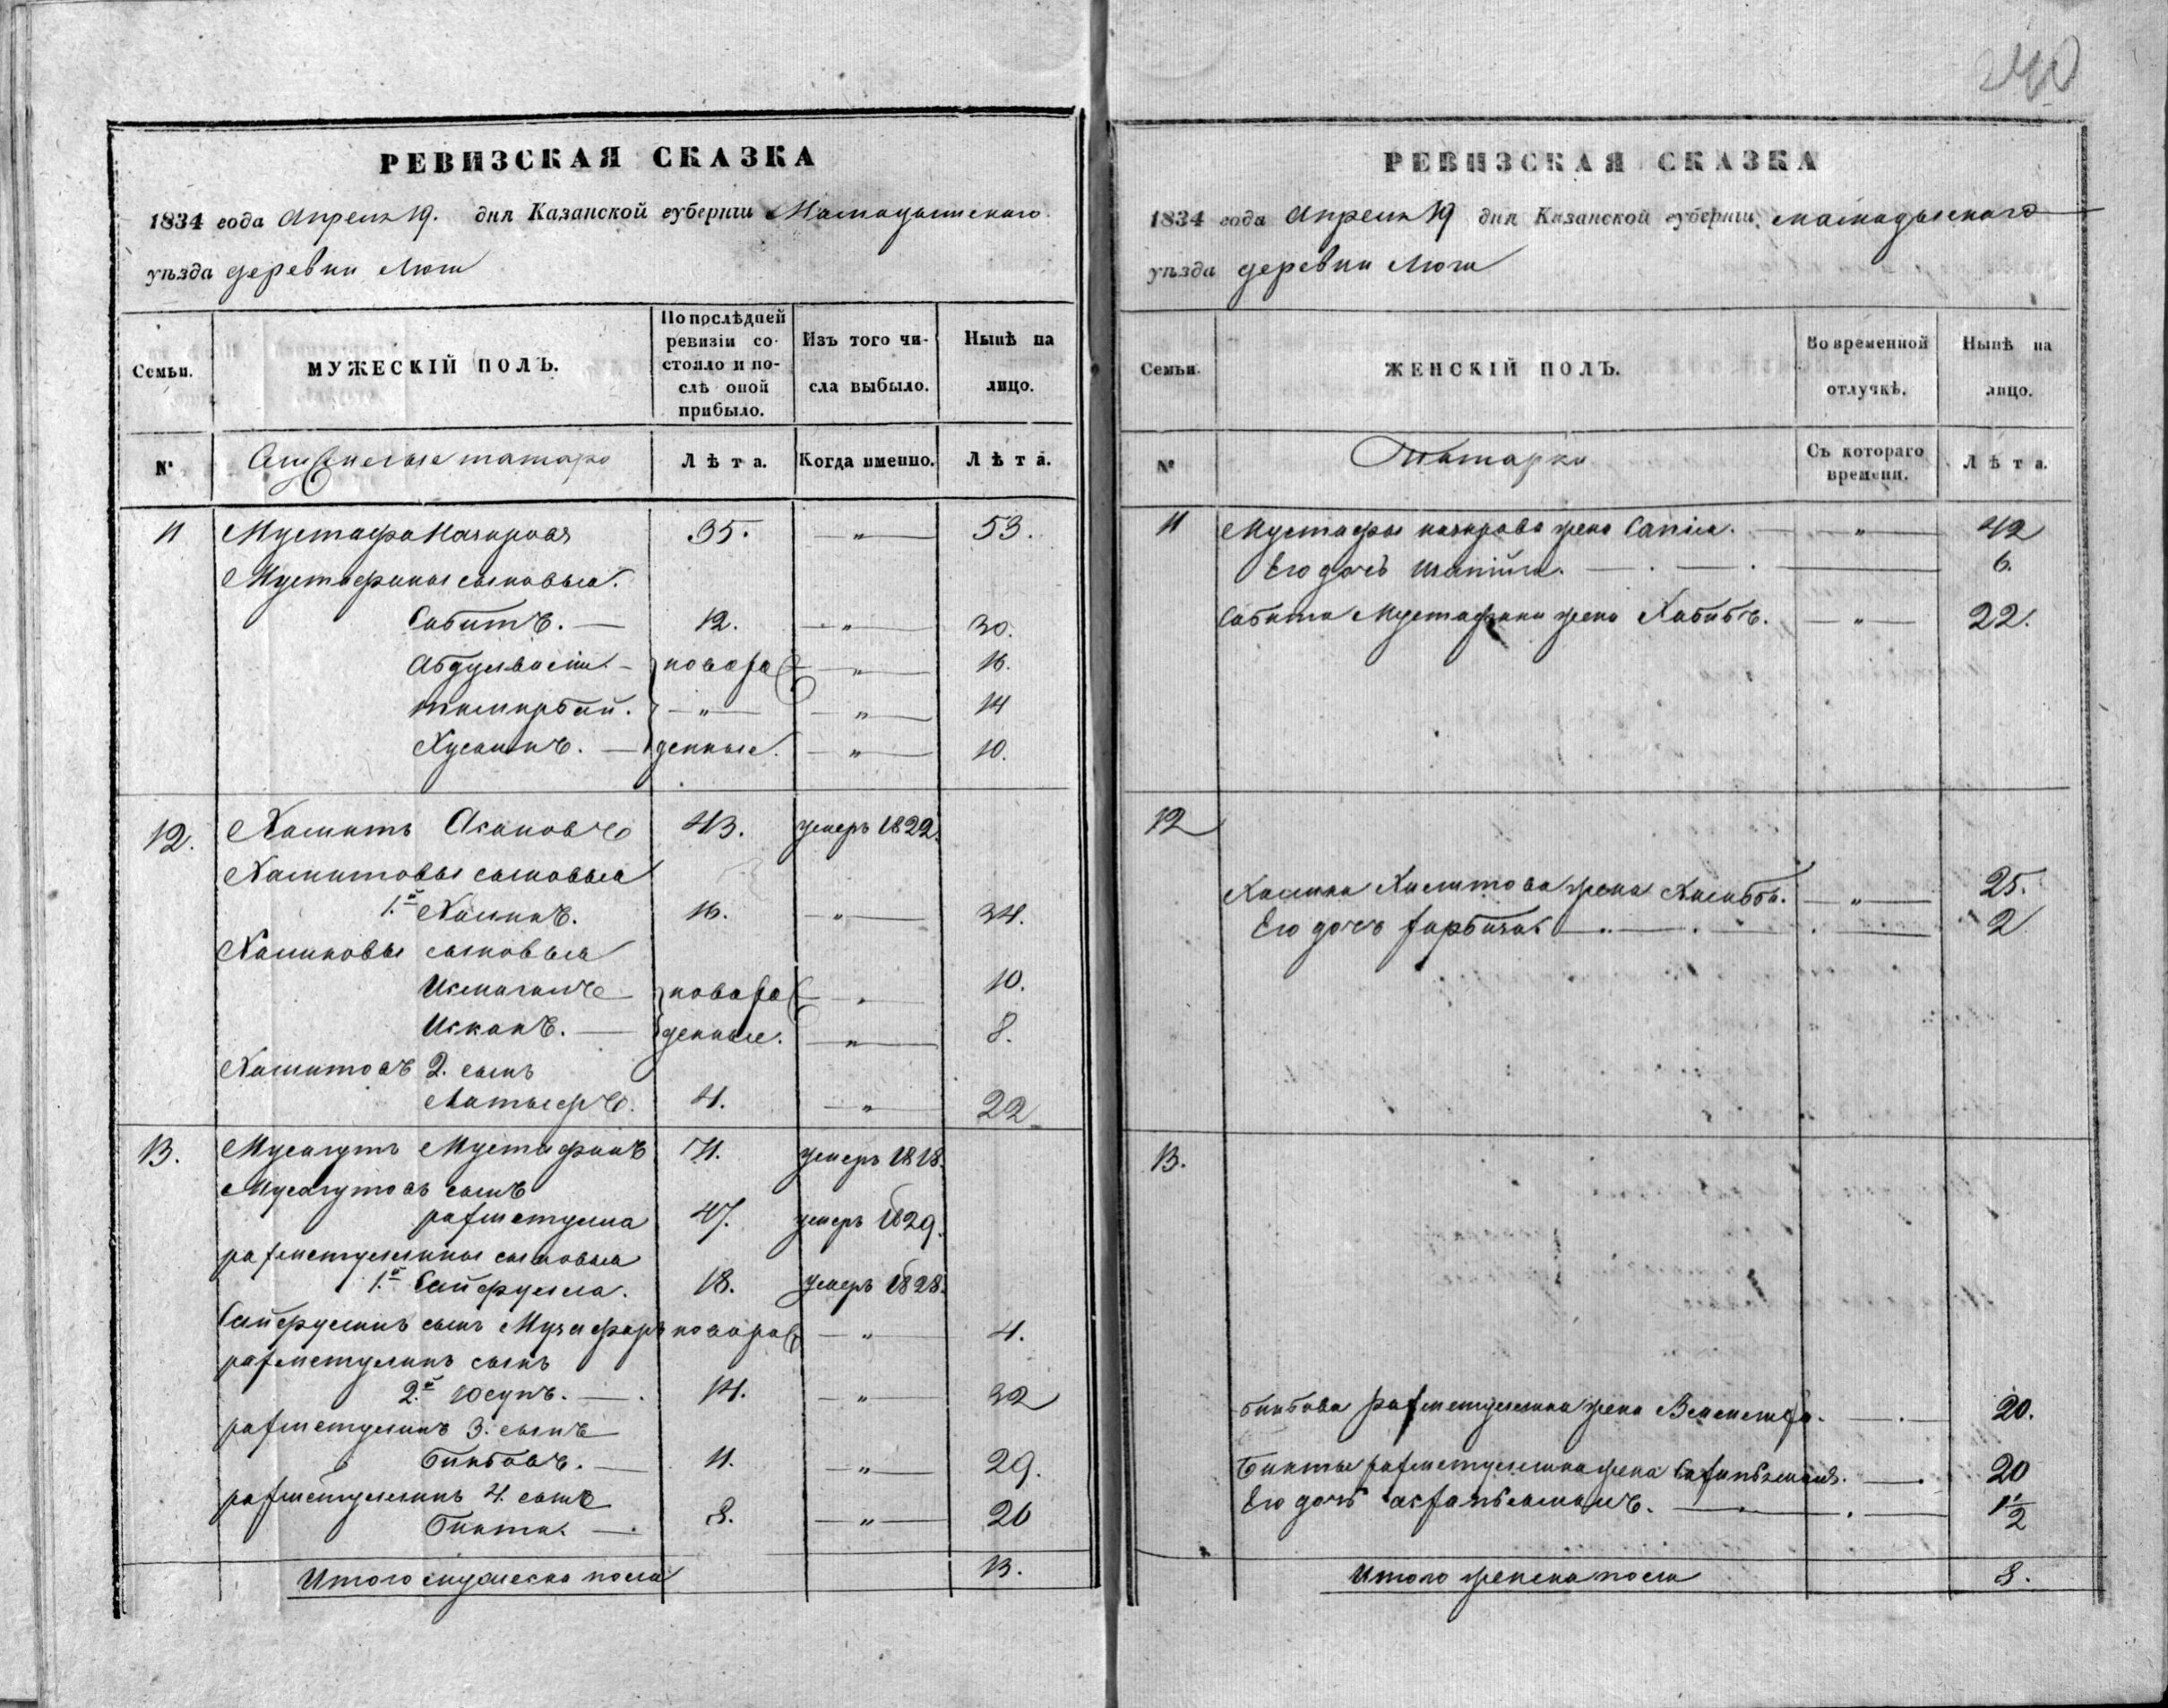 240
РЕВИЗСКАЯ СКАЗКА
1834 года Апреля 19. дня Казанской губернии Мамадышского
уѣзда деревни Люги
Семьи.
МУЖЕСКІЙ ПОЛЪ.
По послѣдней ревизіи состояло и послѣ оной прибыло.
Изъ того числа выбыло.
Нынѣ на лицо.
№
татара
Лѣта.
Когда именно.
Лѣта.
11 Мустафа Назировъ 35. — " — 53.
Мустафины сыновья.
Сабитъ. — 12. — " — 30.
новорож — " — 16.
Тимирбай. — " — — " — 14
Хусаинъ. — денные. — " — 10.
12. Хамитъ Асановъ 43. умеръ 1822.
Хамитовы сыновья
1.й Халинъ. 16. — " — 34.
Халиновы сыновья
Исмагилъ новорож — " — 10.
Исканъ. — денные. — " — 8.
Хамитовъ 2. сынъ
Латыфъ. 4. — " — 22
13. Мусагутъ Мустафинъ 71. умеръ 1818.
Мусагутовъ сынъ
рахметулла 47. умеръ 1829.
рахметуллины сыновья
1.й Сайфулла. 18. умеръ 1828.
Сайфуллинъ сынъ Музафаръ новорож — " — 4.
рахметуллинъ сынъ
2.й Юсупъ. — 14. — " — 32
рахметуллинъ 3. сынъ
Бикбовъ. — 11. — " — 29.
рахметуллинъ 4. сынъ
Бикти. — 8. — " — 26
Итого мужеска пола 13.
РЕВИЗСКАЯ СКАЗКА
1834 года Апреля 19 дня Казанской губерніи мамадышского
уѣзда деревни Люги
Семьи.
ЖЕНСКІЙ ПОЛЪ.
Во временной отлучкѣ.
Нынѣ на лицо.
№
Татарки
Съ котораго времени.
Лѣта.
11 Мустафы назирова жена — " — 42
Его дочь 6.
Сабита Мустафина жена Хабибъ. — " — 22.
12
Халина Хамитова жена — " — 25.
Его дочь 2
13.
Бикбова рахметуллина жена 20.
Бикты рахметуллина жена 20
Его дочь 1/2
Итого женска пола 8.